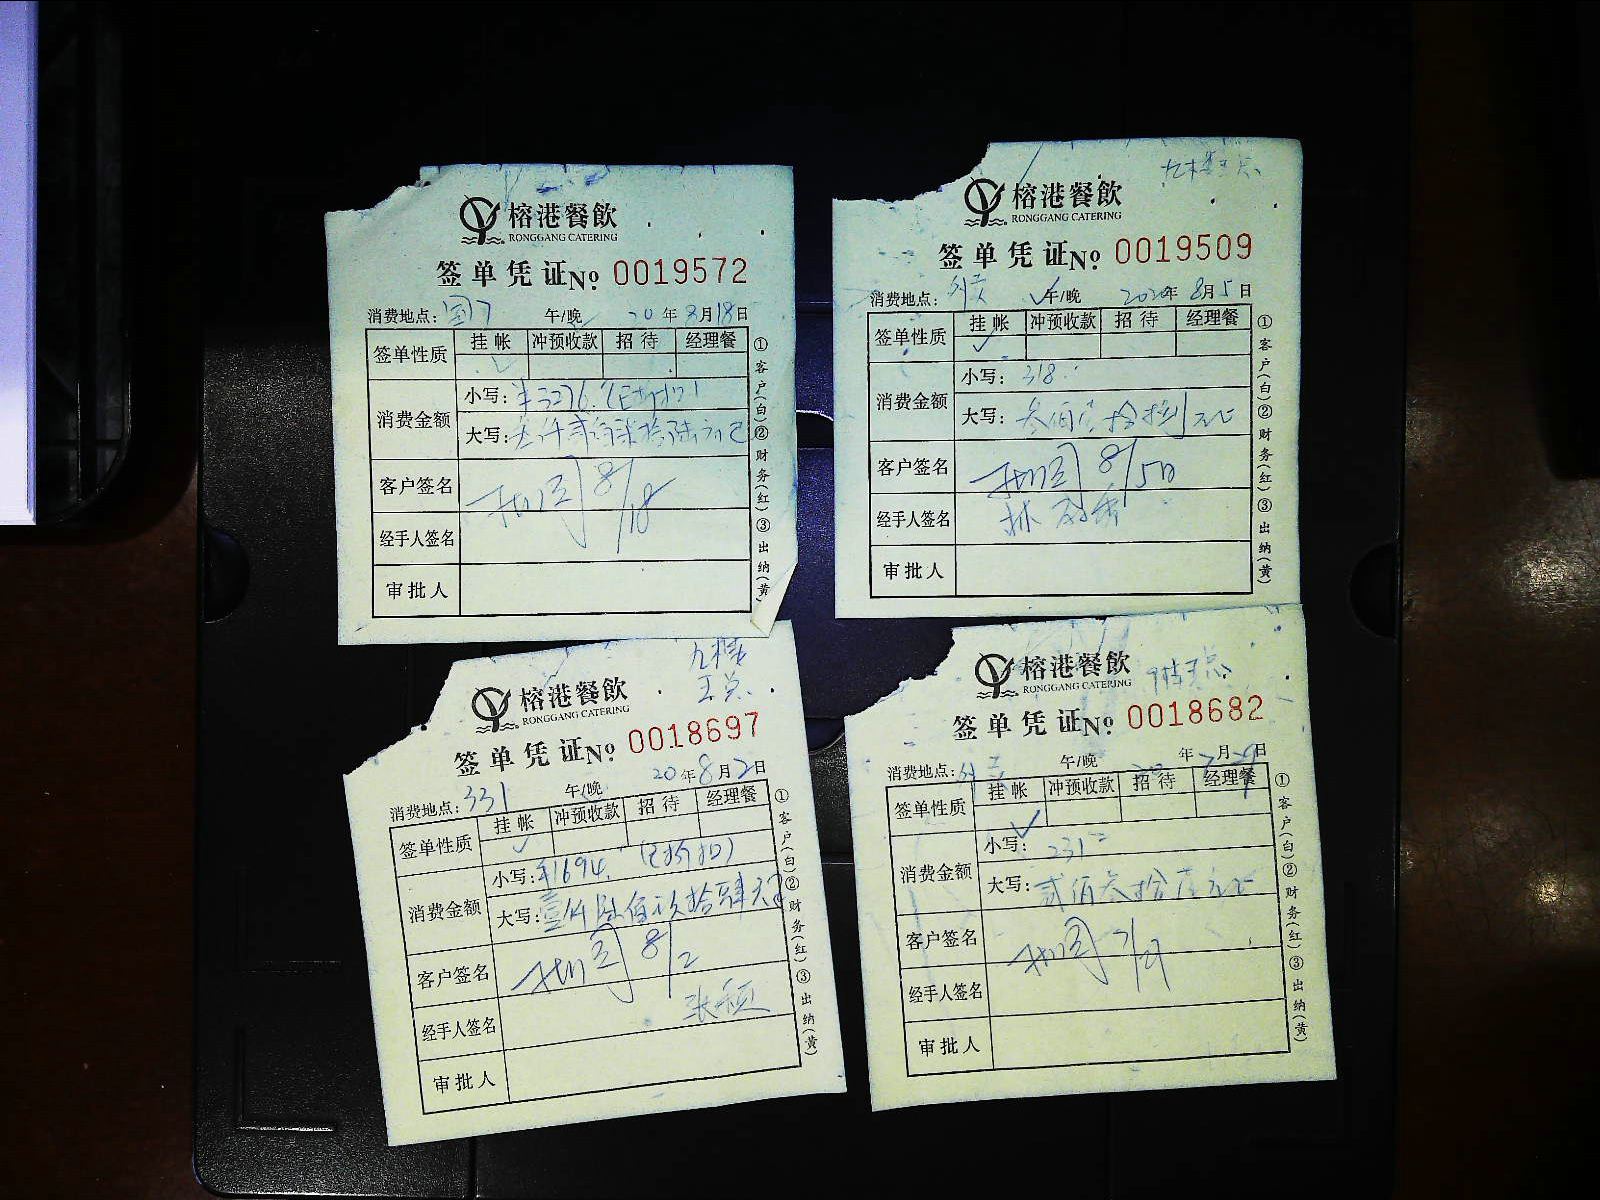 榕港餐飲
RONGGANG CATERING
签单凭证No 0019572
消费地点: 午/晚 20年8月18日
签单性质 挂帐 冲预收款 招待 经理餐
消费金额
小写: ¥3276.(已折扣)
大写: 叁仟贰佰柒拾陆元正
客户签名 8/18
经手人签名
审批人
①客户(白)②财务(红)③出纳(黄)
九楼王总
榕港餐飲
RONGGANG CATERING
签单凭证No 0019509
消费地点: 外卖 午/晚 2020年8月5日
签单性质 挂帐 冲预收款 招待 经理餐
消费金额
小写: 318.
大写: 叁佰壹拾捌元正
客户签名 8/5日
经手人签名 林
审批人
①客户(白)②财务(红)③出纳(黄)
九楼
王总
榕港餐飲
RONGGANG CATERING
签单凭证No 0018697
20年8月2日
消费地点: 331 午/晚
签单性质 挂帐 冲预收款 招待 经理餐
消费金额
小写: ¥1694. (已折扣)
大写: 壹仟陆佰玖拾肆元正
客户签名 8/2
经手人签名 张
审批人
①客户(白)②财务(红)③出纳(黄)
榕港餐飲
RONGGANG CATERING
9楼王总
签单凭证No 0018682
消费地点: 外卖 午/晚 年7月29日
签单性质 挂帐 冲预收款 招待 经理餐
消费金额
小写: 231
大写: 贰佰叁拾壹元正
客户签名
经手人签名
审批人
①客户(白)②财务(红)③出纳(黄)